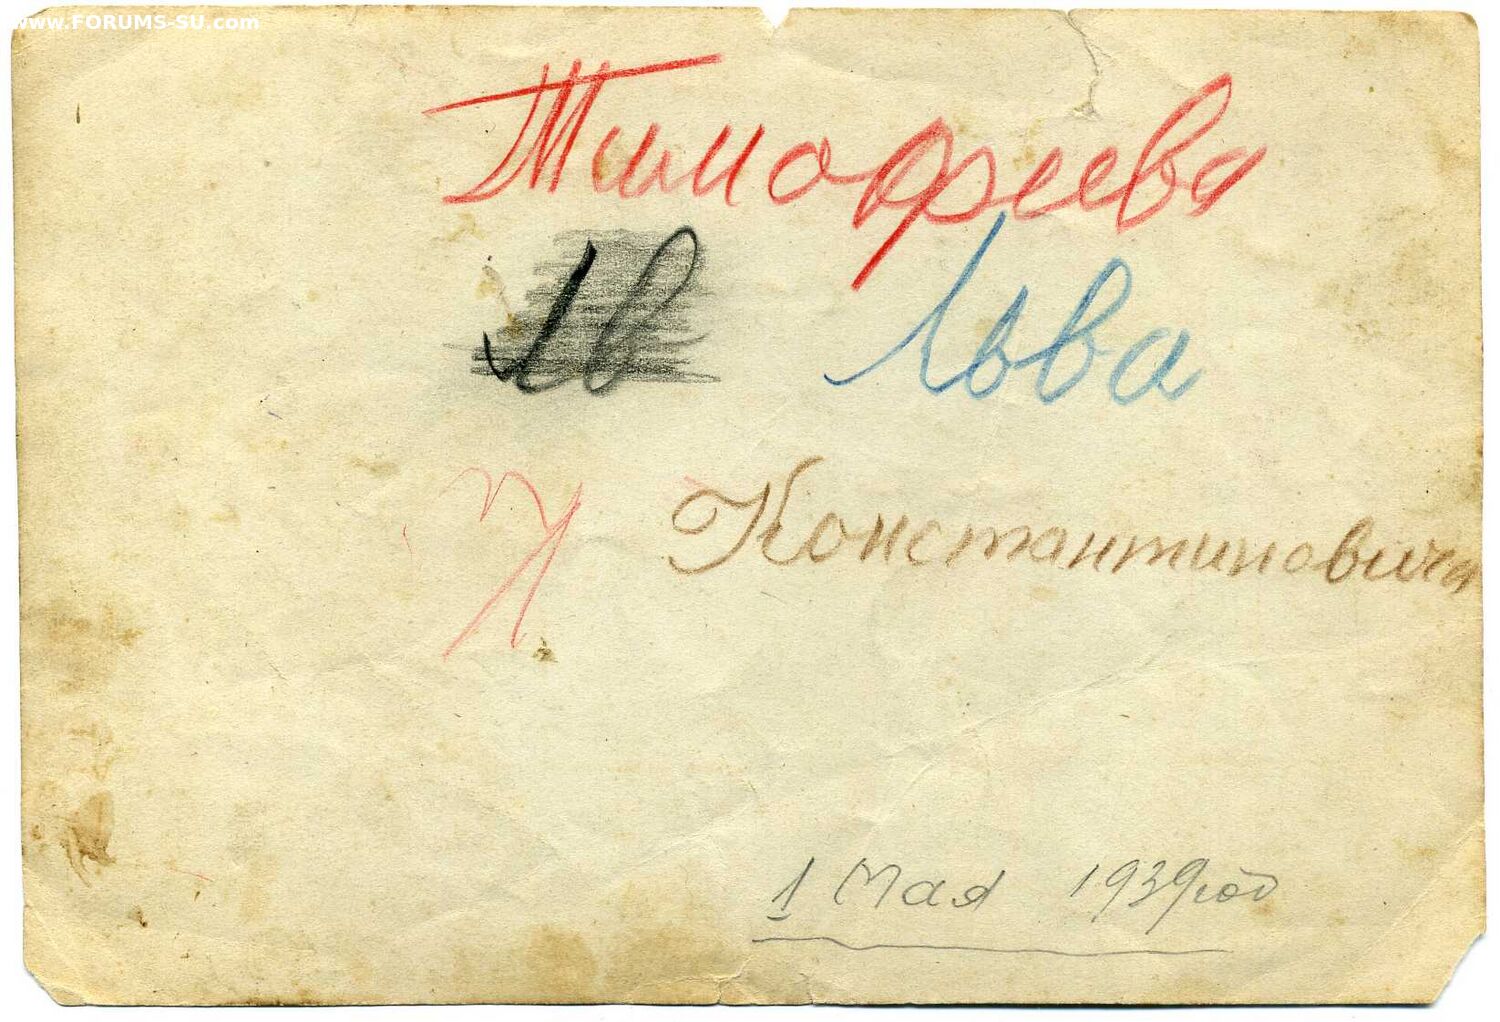 www.FORUMS-SU.com
Тимофеева
Льва
Константиновича
1 Мая 1939 год